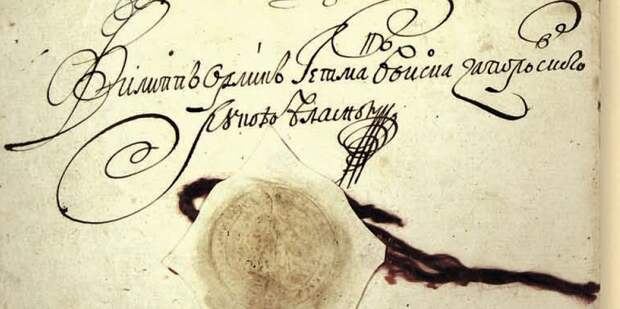 Филиппъ Орликъ Гетманъ Войска запорозского
Рукою власною